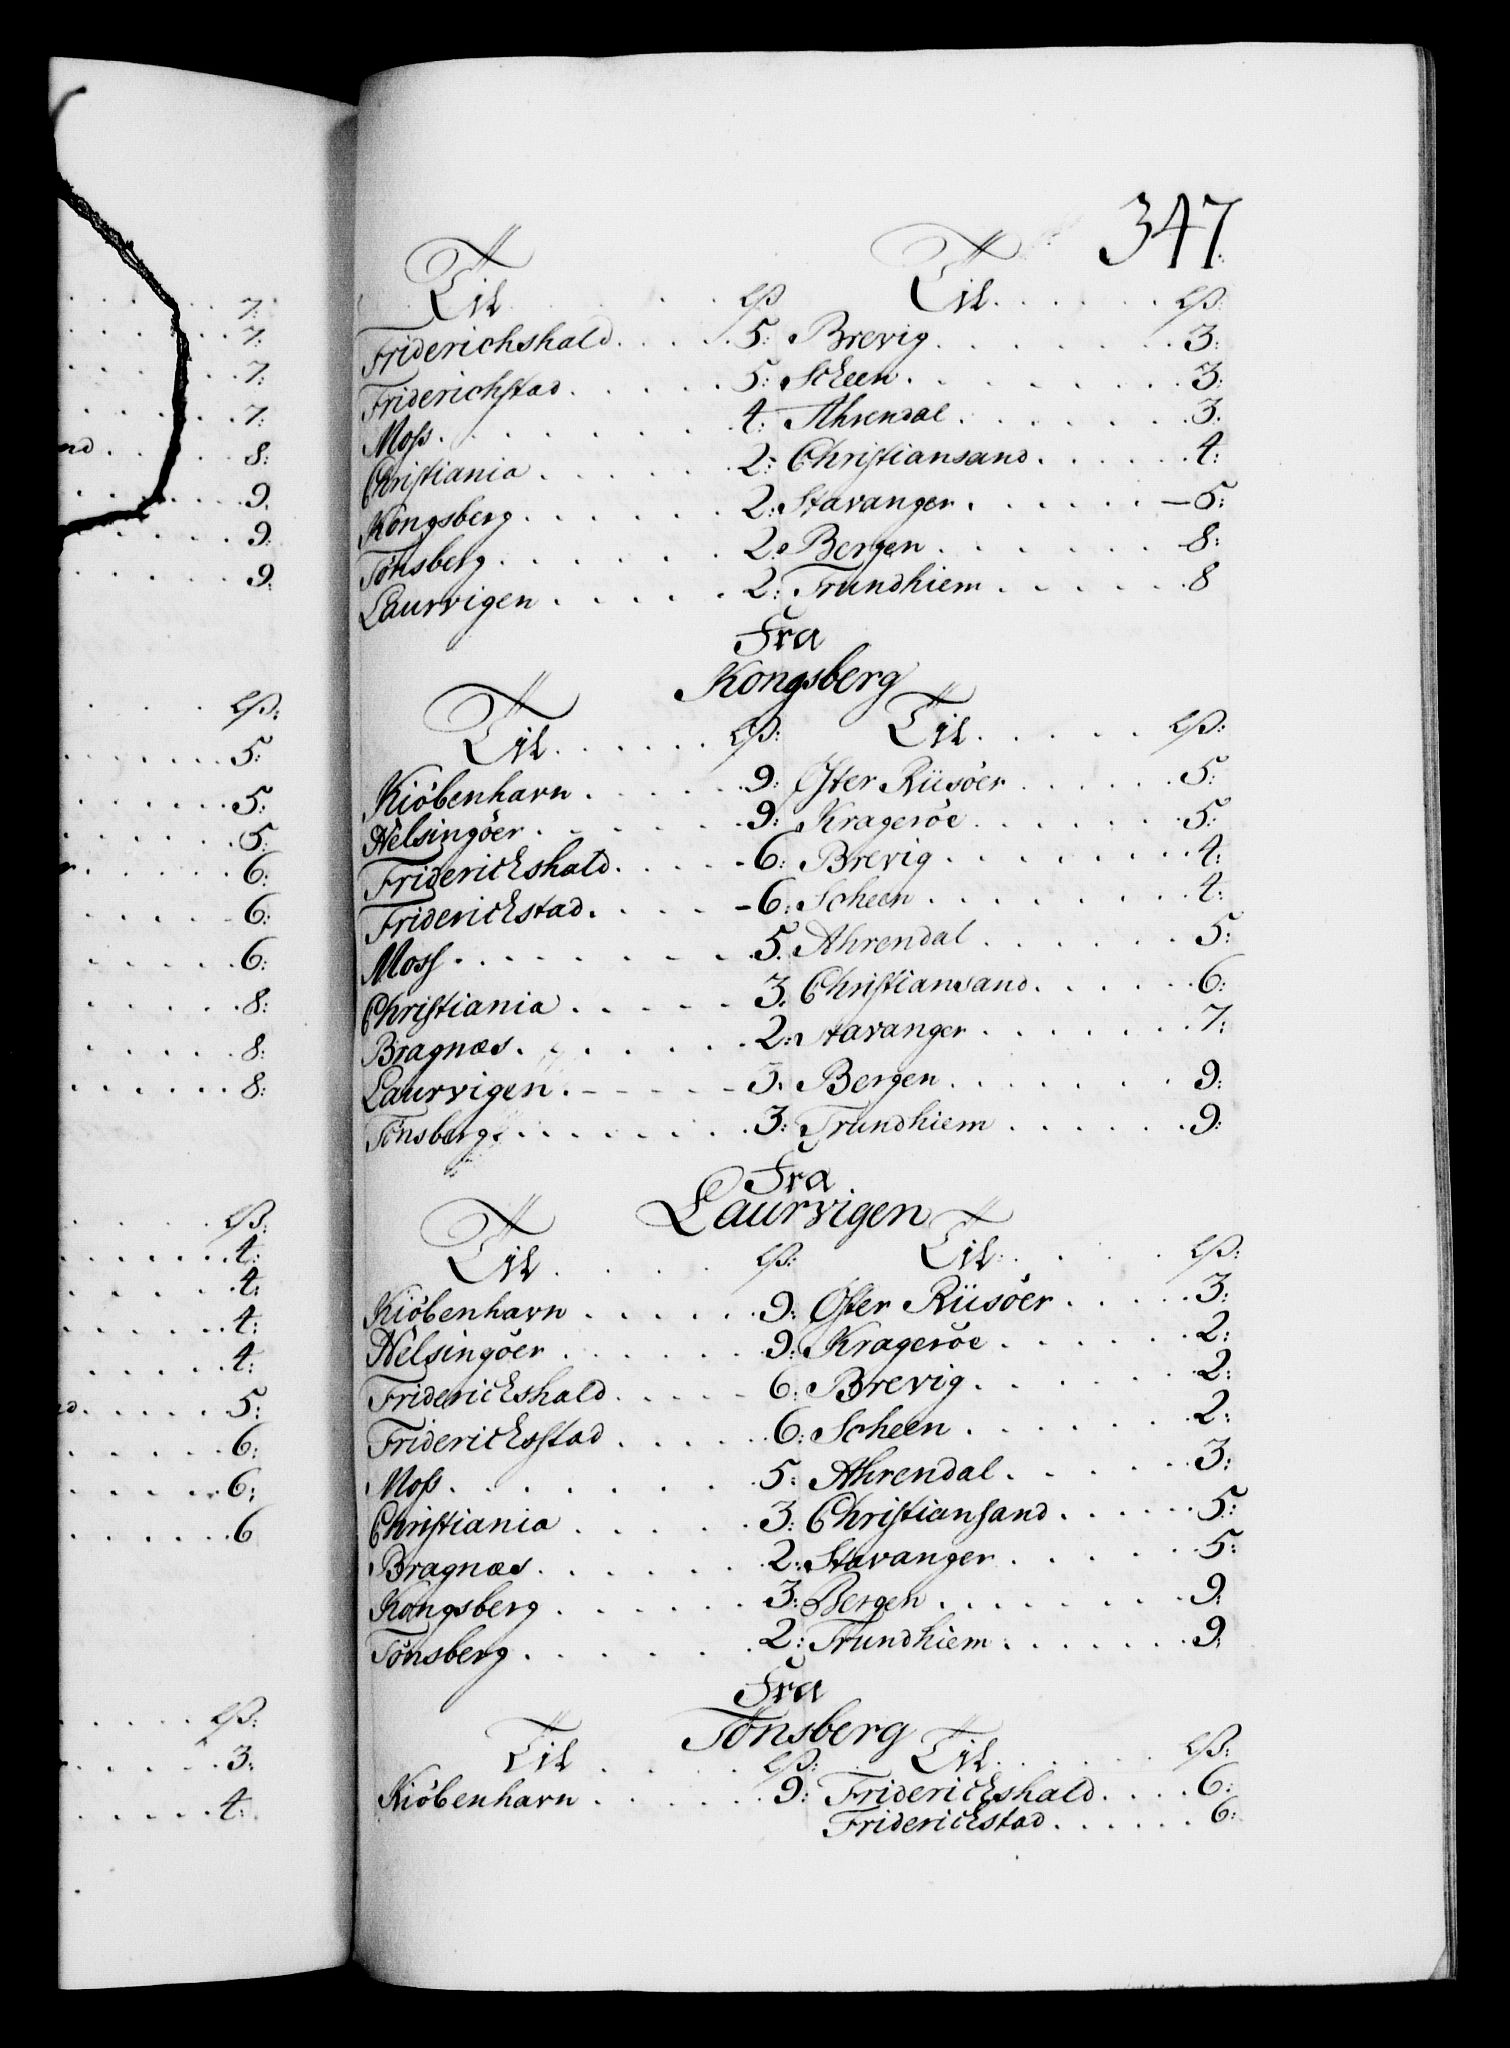 347.
Til . . . lß Til . . . lß:
Friderichshald . . . 5: Brevig . . . 3:
Friderichstad . . . 5: Scheen . . . 3:
Moss . . . 4: Ahrendal . . . 3:
Christiania . . . 2: Christiansand . . . 4:
Kongsberg . . . 2: Stavanger . . . 5:
Tönsberg . . . 2: Bergen . . . 8:
Laurvigen . . . 2: Trundhiem . . . 8
Fra
Kongsberg
Til . . . lß: Til . . . lß:
Kiöbenhavn . . . 9: Öster Riisöer . . . 5:
Helsingöer . . . 9: Krageröe . . . 5:
Friderickshald . . . 6: Brevig . . . 4:
Friderickstad . . . 6: Scheen . . . 4:
Moss . . . 5. Ahrendal . . . 5:
Christiania . . . 3. Christiansand . . . 6:
Bragnæs . . . 2: Stavanger . . . 7:
Laurvigen . . . 3. Bergen . . . 9:
Tönsberg . . . 3: Trundhiem . . . 9:
Fra
Laurvigen
Til . . . lß: Til . . . lß:
Kiöbenhavn . . . 9: Öster Riisöer . . . 3:
Helsingöer . . . 9: Krageröe . . . 2:
Friderickshald . . . 6: Brevig . . . 2:
Fridericksstad . . . 6: Scheen . . . 2:
Moss . . . 5: Ahrendal . . . 3:
Christiania . . . 3: Christiansand . . . 5:
Bragnæs . . . 2: Stavanger . . . 5:
Kongsberg . . . 3: Bergen . . . 9:
Tönsberg . . . 2: Trundhiem . . . 9:
Fra
Tönsberg
Til . . . lß: Til . . . lß:
Kiöbenhavn . . . 9: Friderickshald . . . 6:
Friderickstad . . . 6:
7:
7:
7:
7:
8:
9.
9:
9:
lß:
5:
5:
5:
6:
6:
6:
8:
8:
8:
lß:
4:
4:
4:
4:
5:
6:
6:
6
lß:
3:
4: